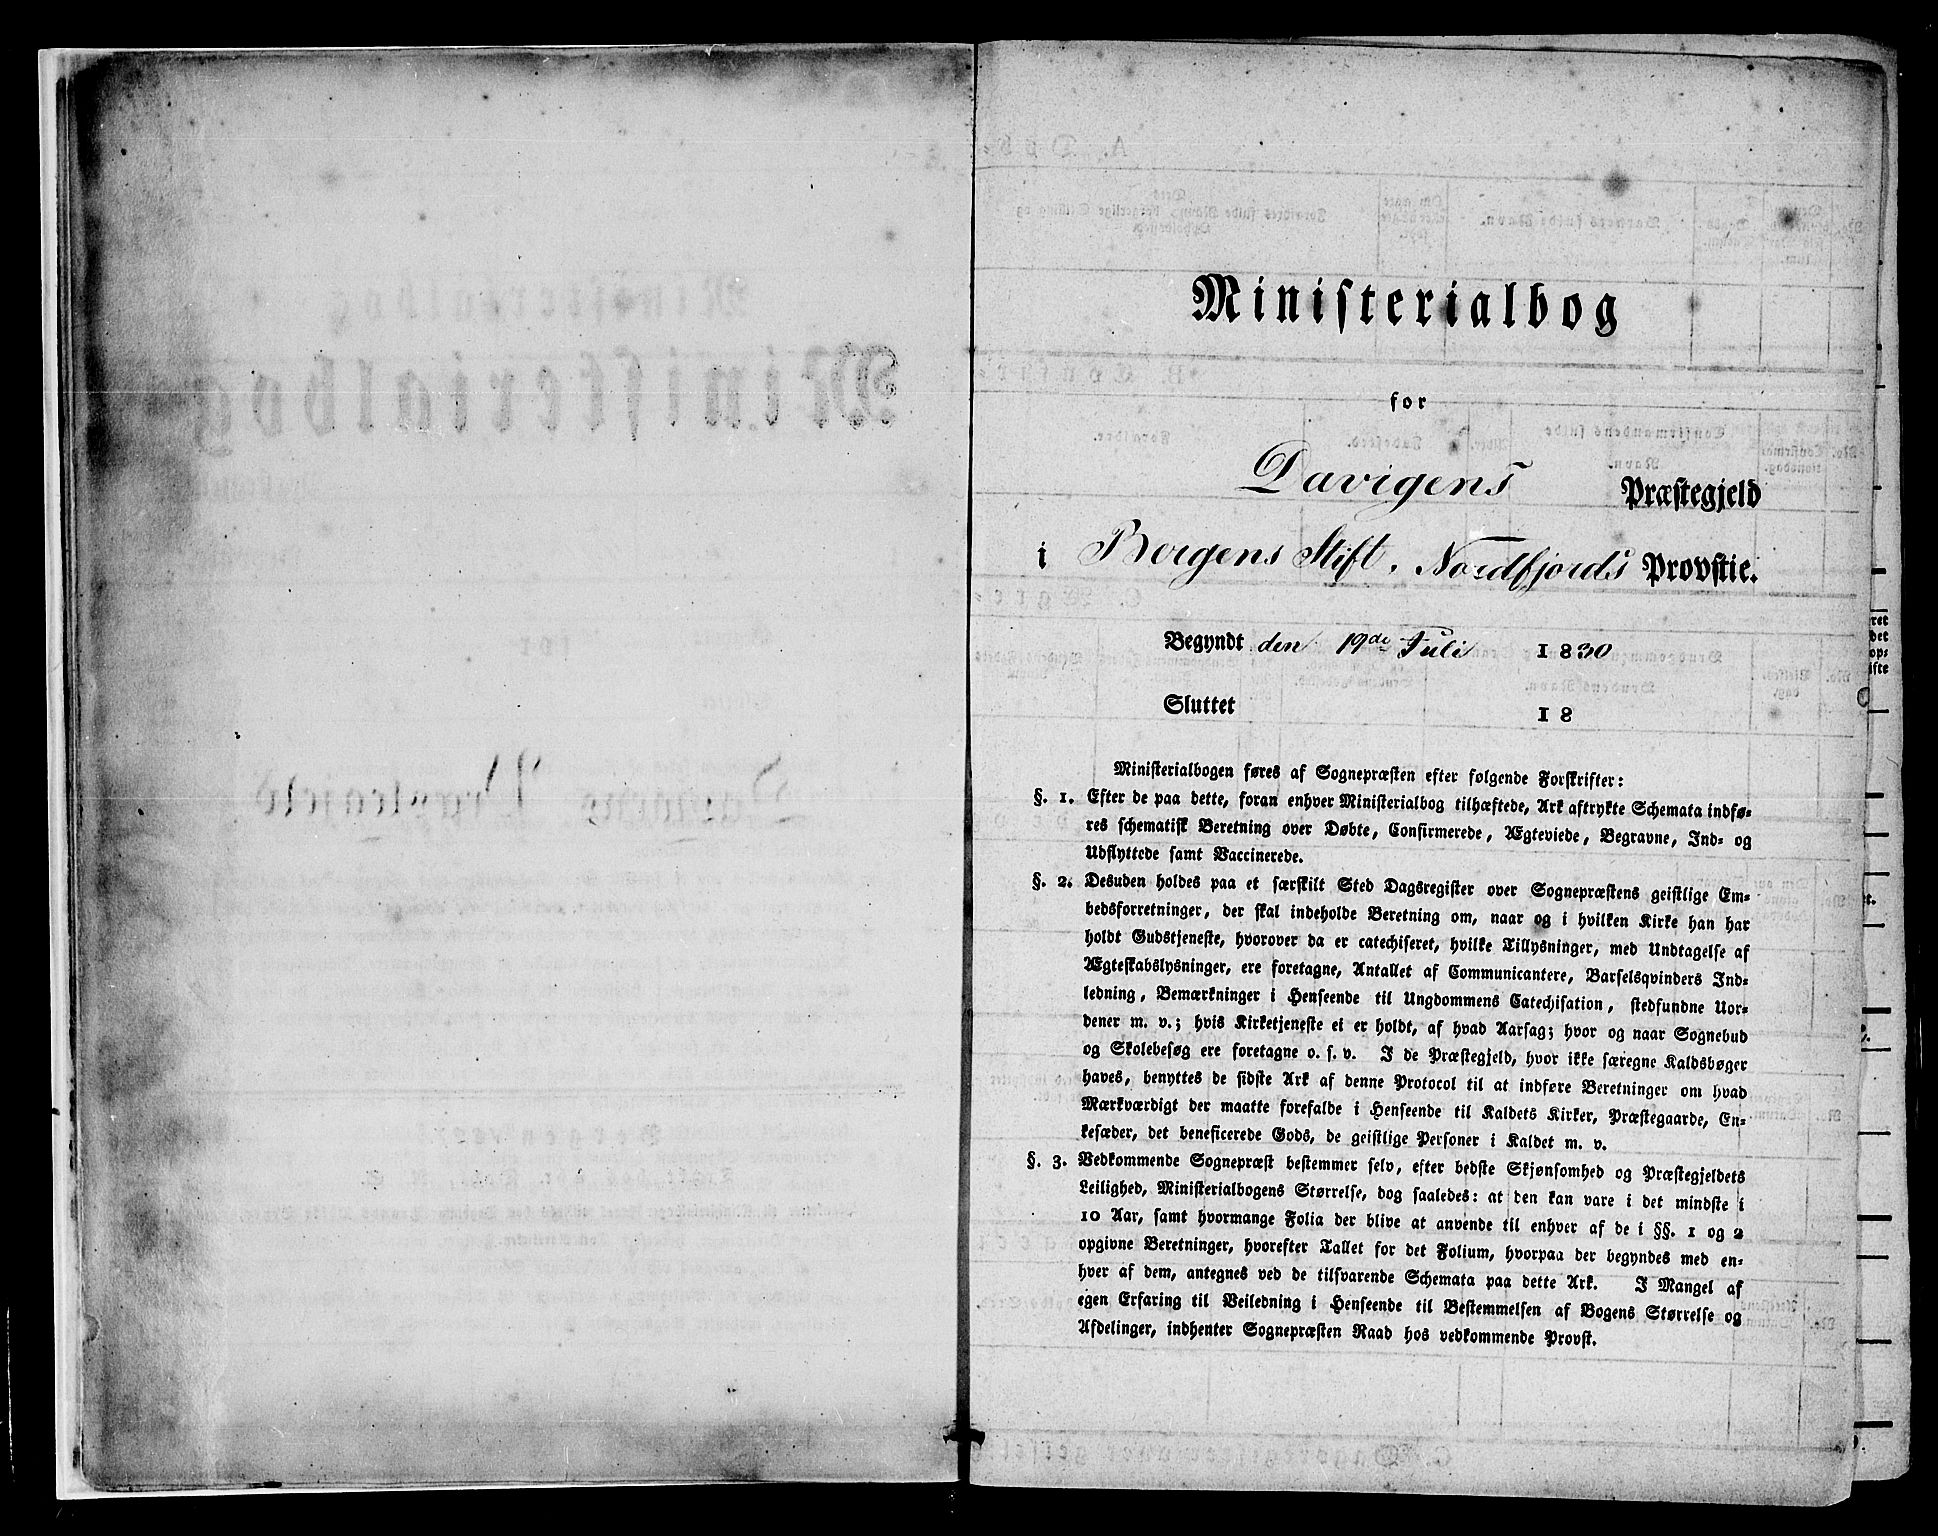 Ministerialbog
for
Davigens Præstegjeld
i Bergens Stift, Nordfjords Provstie.
Begyndt den 19de Juli 1830
Sluttet 18
Ministerialbogen føres af Sognepræsten efter følgende Forskrifter:
§. 1. Efter de paa dette, foran enhver Ministerialbog tilhæftede, Ark aftrykte Schemata indfø-
res schematisk Beretning over Døbte, Confirmerede, Ægteviede, Begravne, Ind- og
Udflyttede samt Vaccinerede.
§. 2. Desuden holdes paa et særskilt Sted Dagsregister over Sognepræstens geistlige Em-
bedsforretninger, der skal indeholde Beretning om, naar og i hvilken Kirke han har
holdt Gudstjeneste, hvorover da er catechiseret, hvilke Tillysninger, med Undtagelse af
Ægteskabslysninger, ere foretagne, Antallet af Communicantere, Barselsqvinders Ind-
ledning, Bemærkninger i Henseende til Ungdommens Catechisation, stedfundne Uor-
dener m. v.; hvis Kirketjeneste ei er holdt, af hvad Aarsag; hvor og naar Sognebud
og Skolebesøg ere foretagne o. s. v. I de Præstegjeld, hvor ikke særegne Kaldsbøger
haves, benyttes de sidste Ark af denne Protocol til at indføre Beretninger om hvad
Mærkværdigt der maatte forefalde i Henseende til Kaldets Kirker, Præstegaarde, En-
kesæder, det beneficerede Gods, de geistlige Personer i Kaldet m. v.
§. 3. Vedkommende Sognepræst bestemmer selv, efter bedste Skjønsomhed og Præstegjeldets
Leilighed, Ministerialbogens Størrelse, dog saaledes: at den kan vare i det mindste i
10 Aar, samt hvormange Folia der blive at anvende til enhver af de i §§. 1 og 2
opgivne Beretninger, hvorefter Tallet for det Folium, hvorpaa der begyndes med en-
hver af dem, antegnes ved de tilsvarende Schemata paa dette Ark. I Mangel af
egen Erfaring til Veiledning i Henseende til Bestemmelsen af Bogens Størrelse og
Afdelinger, indhenter Sognepræsten Raad hos vedkommende Provst.